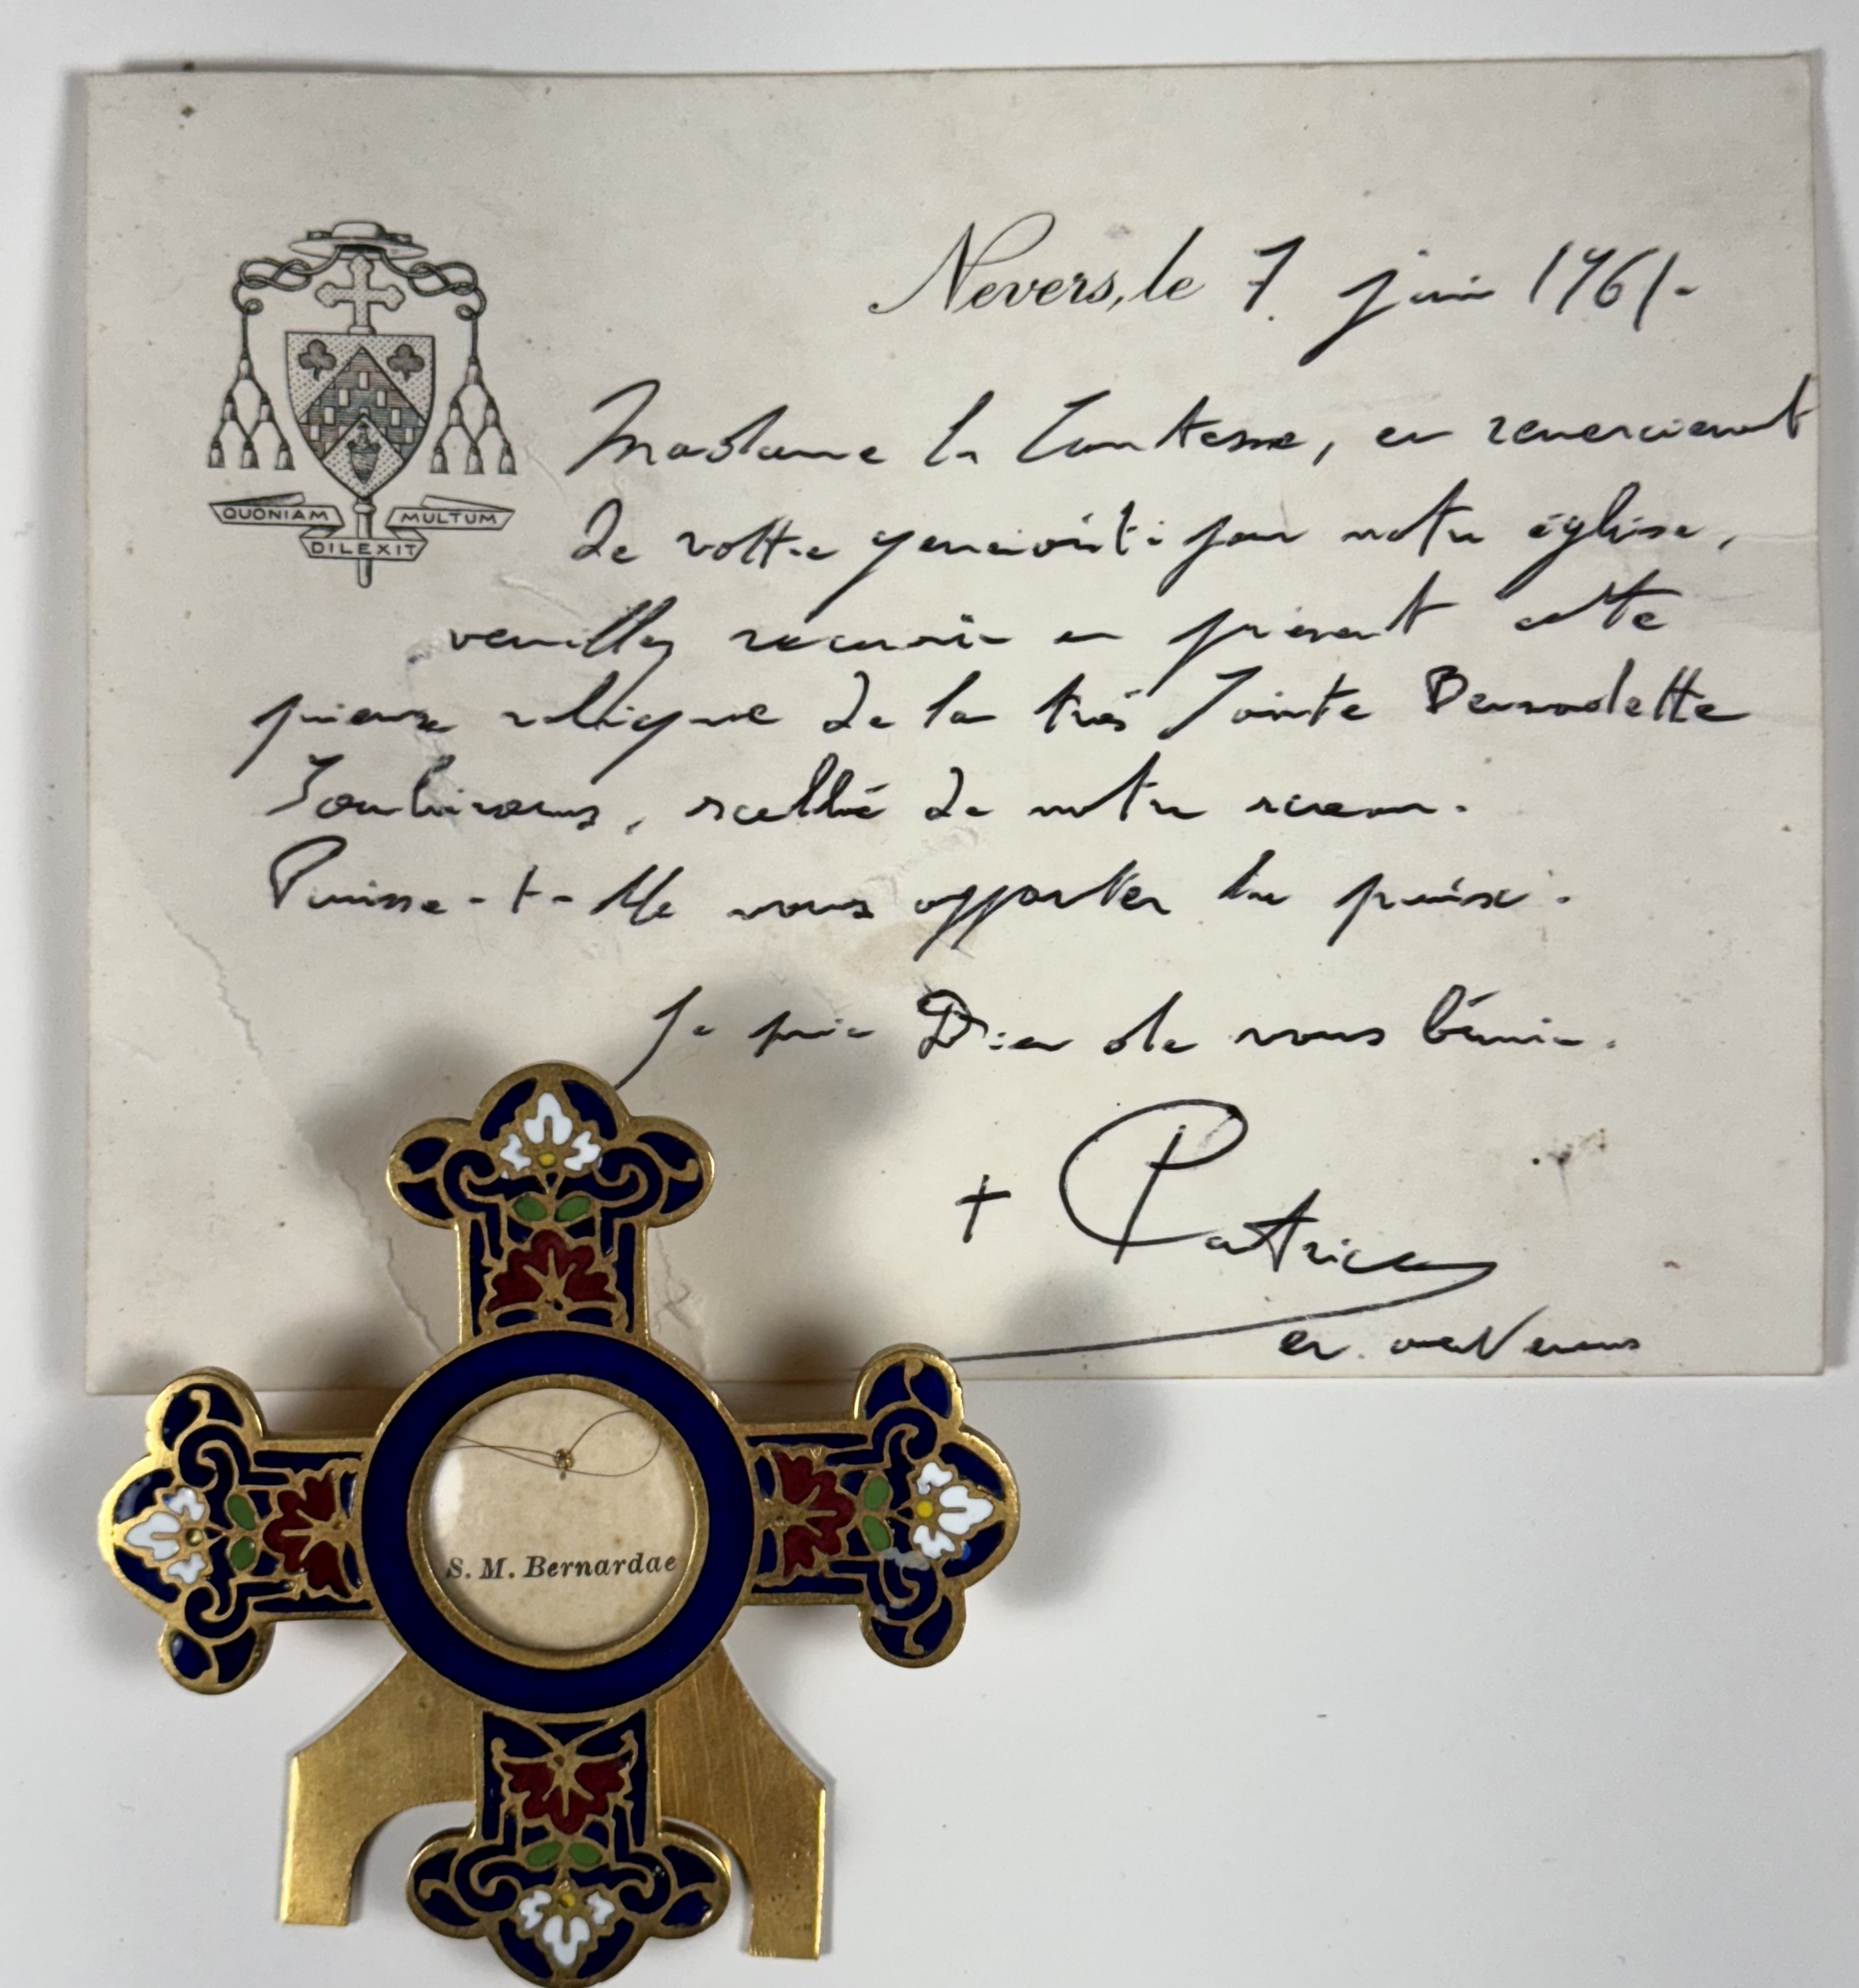 Nevers, le 7 juin 1961.
QUONIAM MULTUM
DILEXIT
Madame la Comtesse, en remerciement
de votre générosité pour notre église,
veuillez recevoir en présent cette
pieuse relique de la très Sainte Bernadette
Soubirous, scellée de notre sceau.
Puisse-t-elle vous apporter la paix.
Je prie Dieu de vous bénir.
+ Patrice
ev. Nevers
S. M. Bernardae